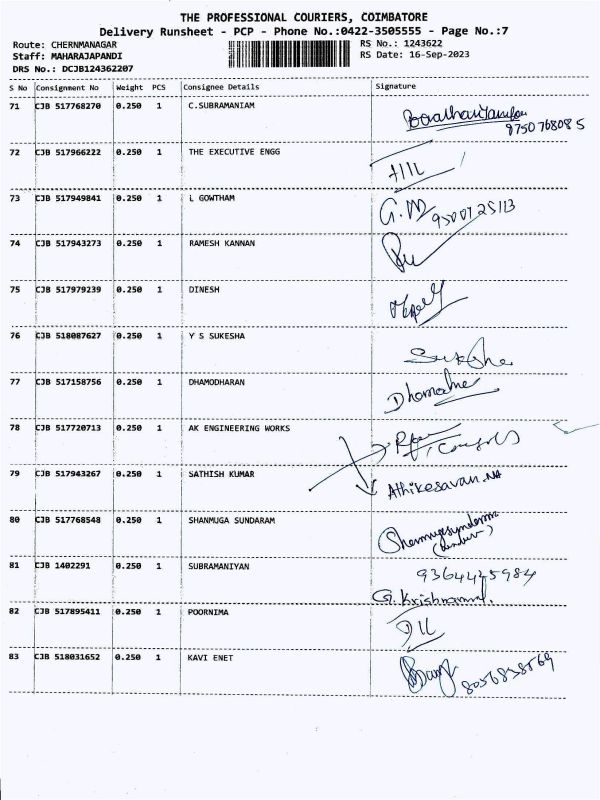 THE PROFESSIONAL COURIERS, COIMBATORE
Delivery Runsheet - PCP - Phone No.:0422-3505555 - Page No.:7
Route: CHERNMANAGAR RS No.: 1243622
Staff: MAHARAJAPANDI RS Date: 16-Sep-2023
DRS No.: DCJB124362207
S No Consignment No Weight PCS Consignee Details Signature
71 CJB 517768270 0.250 1 C.SUBRAMANIAM
9750768085
72 CJB 517966222 0.250 1 THE EXECUTIVE ENGG
73 CJB 517949841 0.250 1 L GOWTHAM G.M
74 CJB 517943273 0.250 1 RAMESH KANNAN
75 CJB 517979239 0.250 1 DINESH
76 CJB 518087627 0.250 1 Y S SUKESHA
77 CJB 517158756 0.250 1 DHAMODHARAN
78 CJB 517720713 0.250 1 AK ENGINEERING WORKS
79 CJB 517943267 0.250 1 SATHISH KUMAR Athikesavan.NA
80 CJB 517768548 0.250 1 SHANMUGA SUNDARAM
81 CJB 1402291 0.250 1 SUBRAMANIYAN 9364425984
G.Krishnammal.
82 CJB 517895411 0.250 1 POORNIMA
83 CJB 518031652 0.250 1 KAVI ENET 8056838569